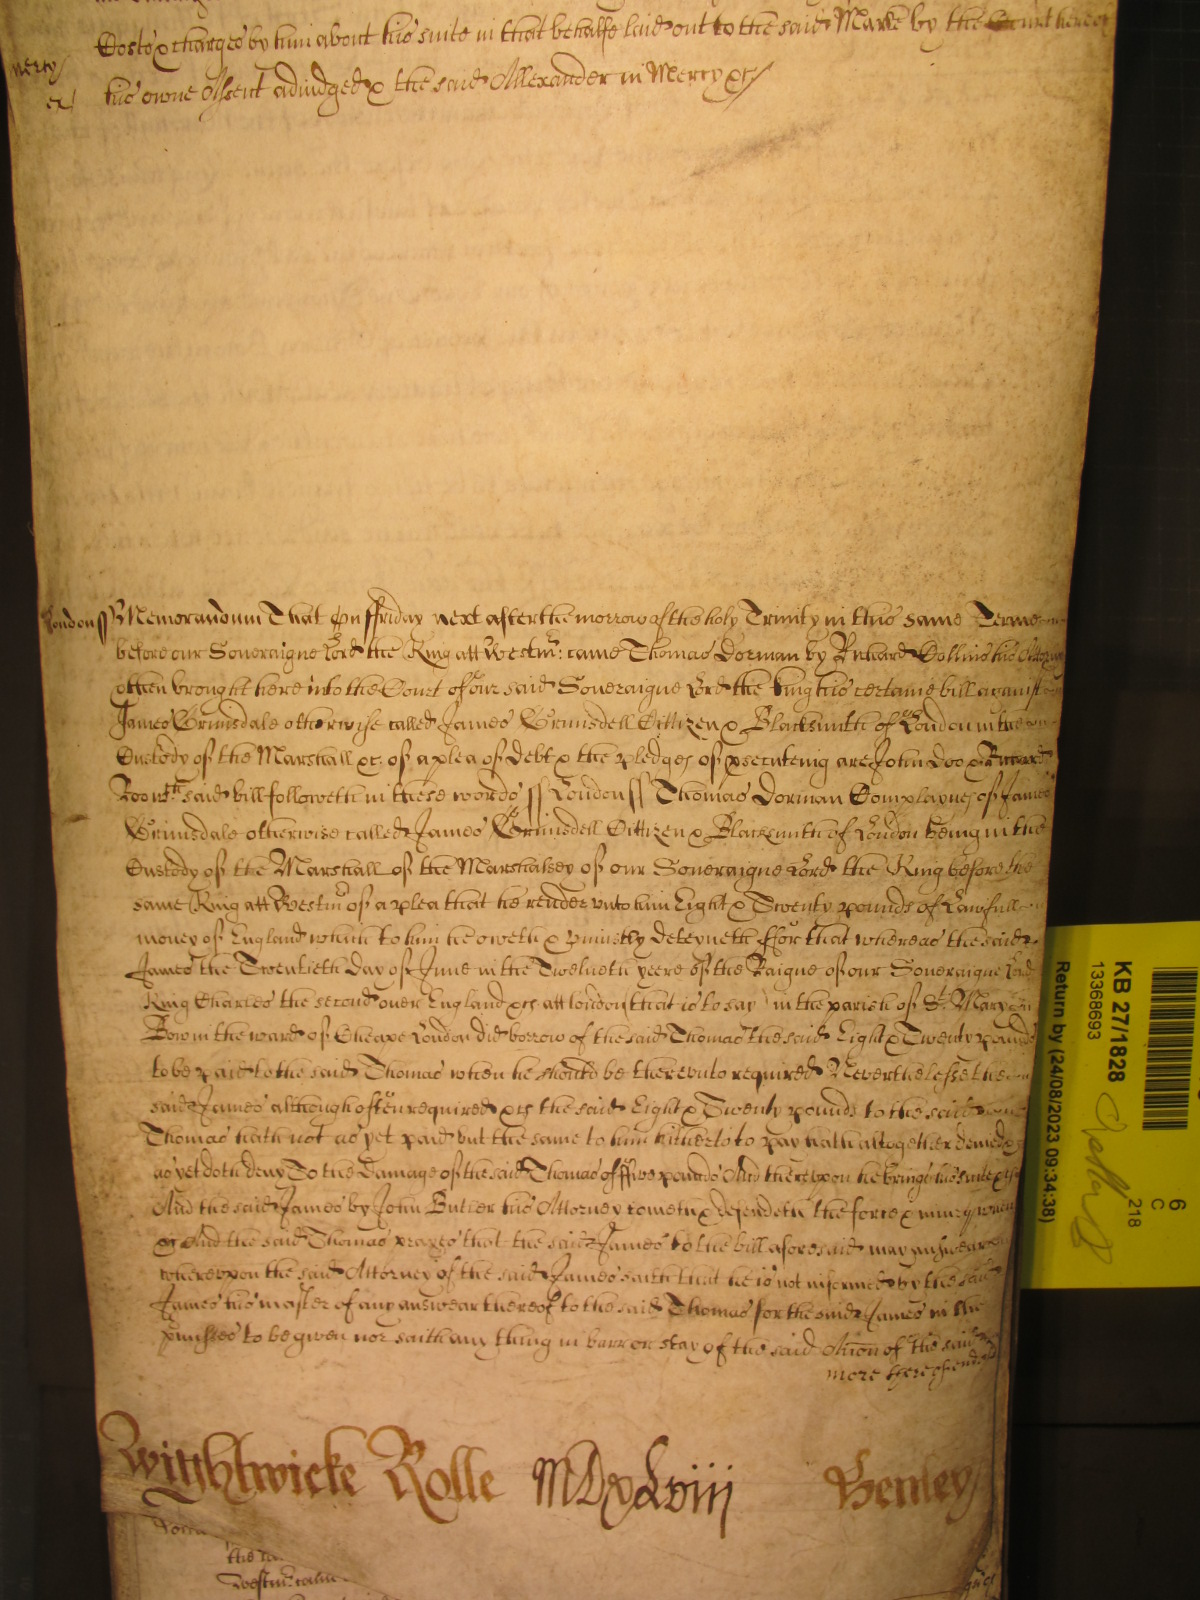 Costs & charges by him about his suite in that behalfe laid out to the said Marke by the Court here of
mercy
his owne Assent adiudged & the said Allexander in Mercy &c
ex
London ss Memorandum That on ffriday next after the morrow of the holy Trinity in this same Terme
before our Soueraigne Lord the King att Westm: came Thomas Dorman by Richard Collins his Attorny
& then brought here into the Court of our said Soueraigne Lord the King his certaine bill against
James Grimsdale otherwise called James Grimsdell Cittizen & Blacksmith of London in the
Custody of the Marshall &c of a plea of debt & the pledges of psecuteing are John Doo & Richard
Roo wch said bill followeth in these words ss London ss Thomas Dorman Complaynes of James
Grimsdale otherwise called James Grimsdell Cittizen & Blacksmith of London being in the
Custody of the Marshall of the Marshalsey of our Soueraigne Lord the King before the
same King att Westm of a plea that he render vnto him Eight & Twenty pounds of Lawfull
money of England which to him he oweth & vniustly deteyneth ffor that whereas the said
James the Twentieth Day of June in the Twelueth yeere of the Raigne of our Soueraigne Lord
King Charles the second ouer England &c att London that is to say in the parish of St Mary
Bow in the ward of Cheape London did borrow of the said Thomas the said Eight & Twenty pounds
to be paid to the said Thomas when he should be therevnto required Neverthelesse the
said James although often required &c the said Eight & Twenty pounds to the said
Thomas hath not as yet paid but the same to him hitherto to pay hath altogether denied &
as yet doth deny To the Damage of the said Thomas of ffive pounds And therevpon he brings his suite &c
And the said James by John Butler his Attorney cometh & defendeth the force & iniury when
&c And the said Thomas prayes that the said James to the bill aforesaid may answear
wherevpon the said Attorney of the said James saith that he is not informed by the said
James his master of any answear thereof to the said Thomas for the said James in the
pmisses to be given nor saith any thing in barr or stay of the said Accon of the said
more hereof
Wightwicke Rolle MDxLviij Henley
Westm came
KB 27/1828
13368693
Return by (24/08/2023 09:34:38)
6
C
218